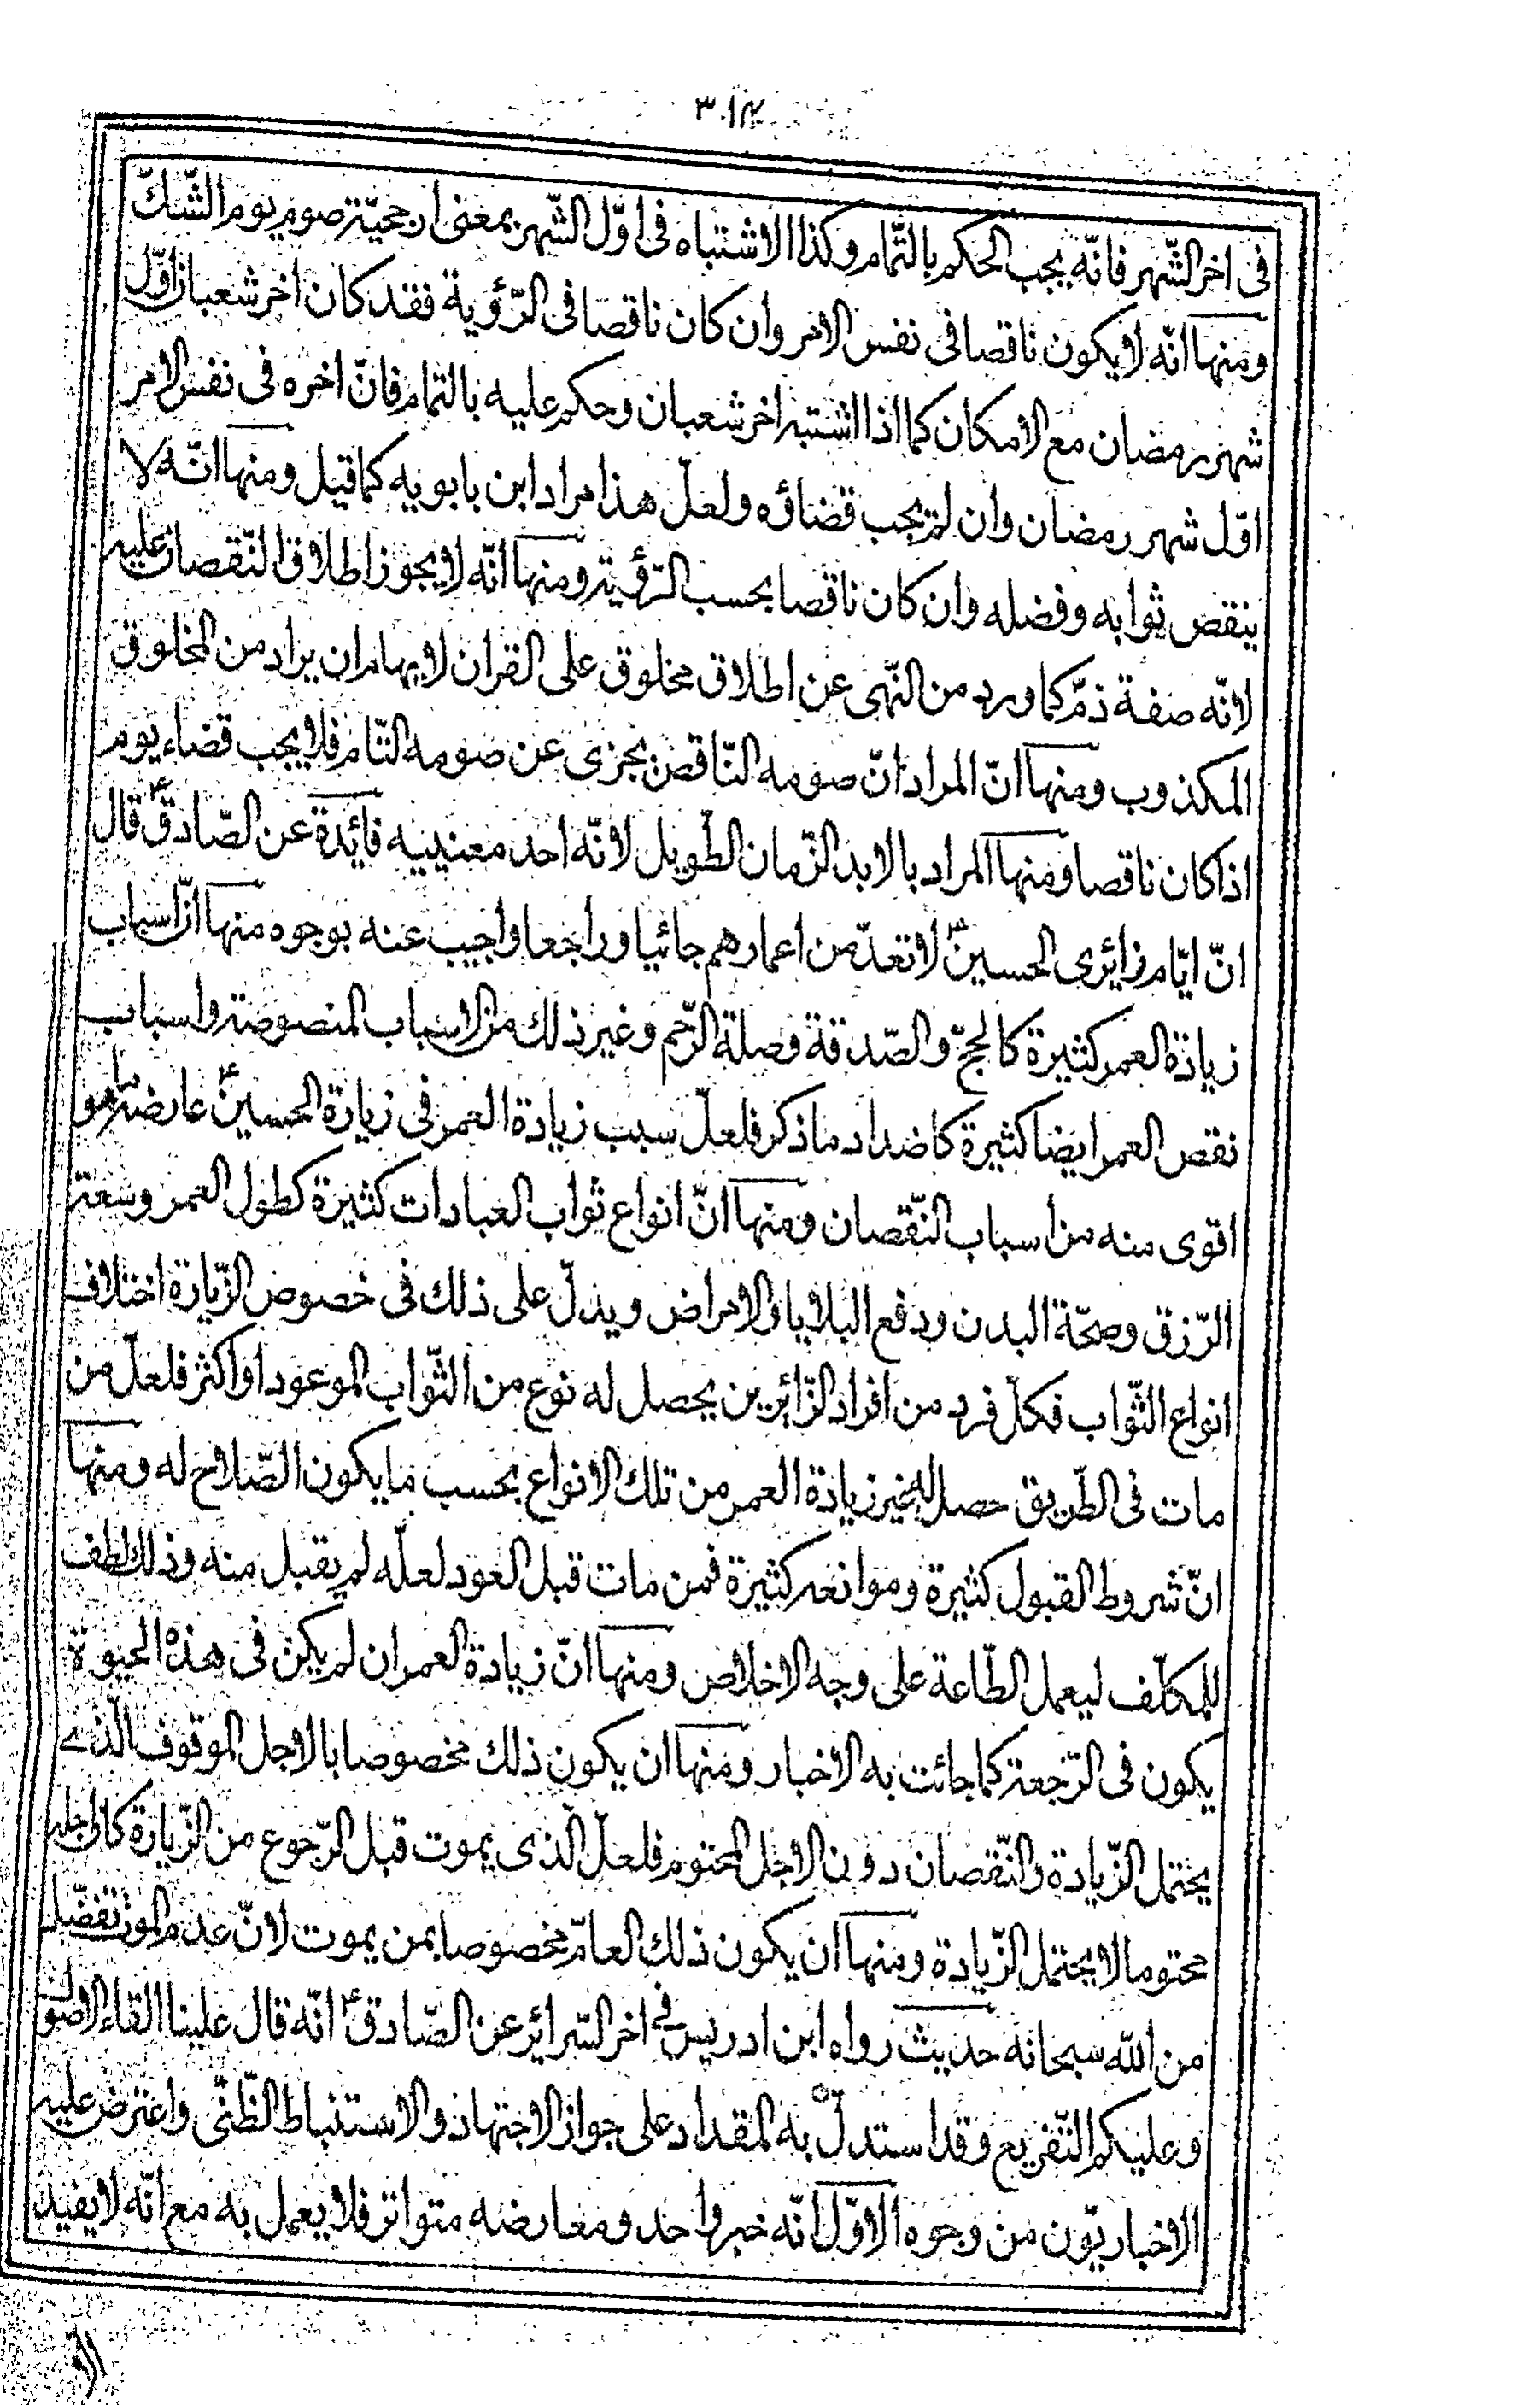 ٣١٢
فى اخر الشّهر فانّه يجب الحكم بالتّمام وكذا الاشتباه فى اوّل الشّهر بمعنى ارجحيّة صوم يوم الشّكّ
ومنها انّه لا يكون ناقصا فى نفس الامر وان كان ناقصا فى الرّؤية فقد كان اخر شعبان اوّل
شهر رمضان مع الامكان كما اذا اشتبه اخر شعبان وحكم عليه بالتمام فانّ اخره فى نفس الامر
اوّل شهر رمضان وان لم يجب قضاؤه ولعلّ هذا مراد ابن بابويه كما قيل ومنها انّه لا
ينقص ثوابه وفضله وان كان ناقصا بحسب الرّؤية ومنها انّه لا يجوز اطلاق النّقصان عليه
لانّه صفة ذمّ كما ورد من النّهى عن اطلاق مخلوق على القران لايهام ان يراد من المخلوق
المكذوب ومنها انّ المراد انّ صومه النّاقص يجزى عن صومه التّام فلا يجب قضاء يوم
اذا كان ناقصا ومنها المراد بالابد الزّمان الطّويل لانّه احد معنييه فائدة عن الصّادق ع قال
انّ ايّام زائرى الحسين ع لا تعدّ من اعمارهم جائيا وراجعا واجيب عنه بوجوه منها انّ اسباب
زيادة العمر كثيرة كالحجّ والصّدقة وصلة الرّحم وغير ذلك من الاسباب المنصوصة واسباب
نقص العمر ايضا كثيرة كاضداد ما ذكر فلعلّ سبب زيادة العمر فى زيارة الحسين ع عارضه ما هو
اقوى منه من اسباب النّقصان ومنها انّ انواع ثواب العبادات كثيرة كطول العمر وسعة
الرّزق وصحّة البدن ودفع البلايا والامراض ويدلّ على ذلك فى خصوص الزّيارة اختلاف
انواع الثّواب فكلّ فرد من افراد الزّائرين يحصل له نوع من الثّواب الموعود او اكثر فلعلّ من
مات فى الطّريق حصل له غير زيادة العمر من تلك الانواع بحسب ما يكون الصّلاح له ومنها
انّ شروط القبول كثيرة وموانعه كثيرة فمن مات قبل العود لعلّه لم يقبل منه وذلك لطف
للمكلّف ليعمل الطّاعة على وجه الاخلاص ومنها انّ زيادة العمر ان لم يكن فى هذه الحيوة
يكون فى الرّجعة كما جائت به الاخبار ومنها ان يكون ذلك مخصوصا بالاجل الموقوف الّذى
يحتمل الزّيادة والنّقصان دون الاجل المحتوم فلعلّ الّذى يموت قبل الرّجوع من الزّيارة كان اجله
محتوما لا يحتمل الزّيادة ومنها ان يكون ذلك العامّ مخصوصا بمن يموت لانّ عدم الموت تفضّل
من الله سبحانه حديث رواه ابن ادريس فى اخر السّرائر عن الصّادق ع انّه قال علينا القاء الاصول
وعليكم التّفريع وقد استدلّ به المقداد على جواز الاجتهاد والاستنباط الظّنّى واعترض عليه
الاخباريّون من وجوه الاوّل انّه خبر واحد ومعارضه متواتر فلا يعمل به مع انّه لا يفيد